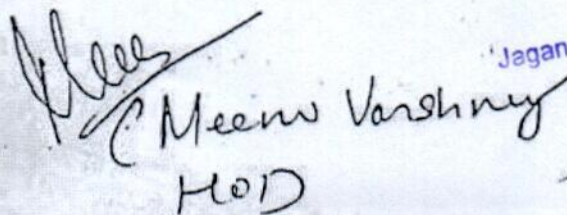 Jagan
(Meenu Varshney
HOD